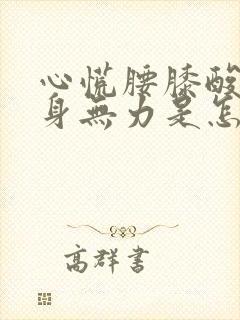 心慌腰膝酸
身無力是怎
高群書